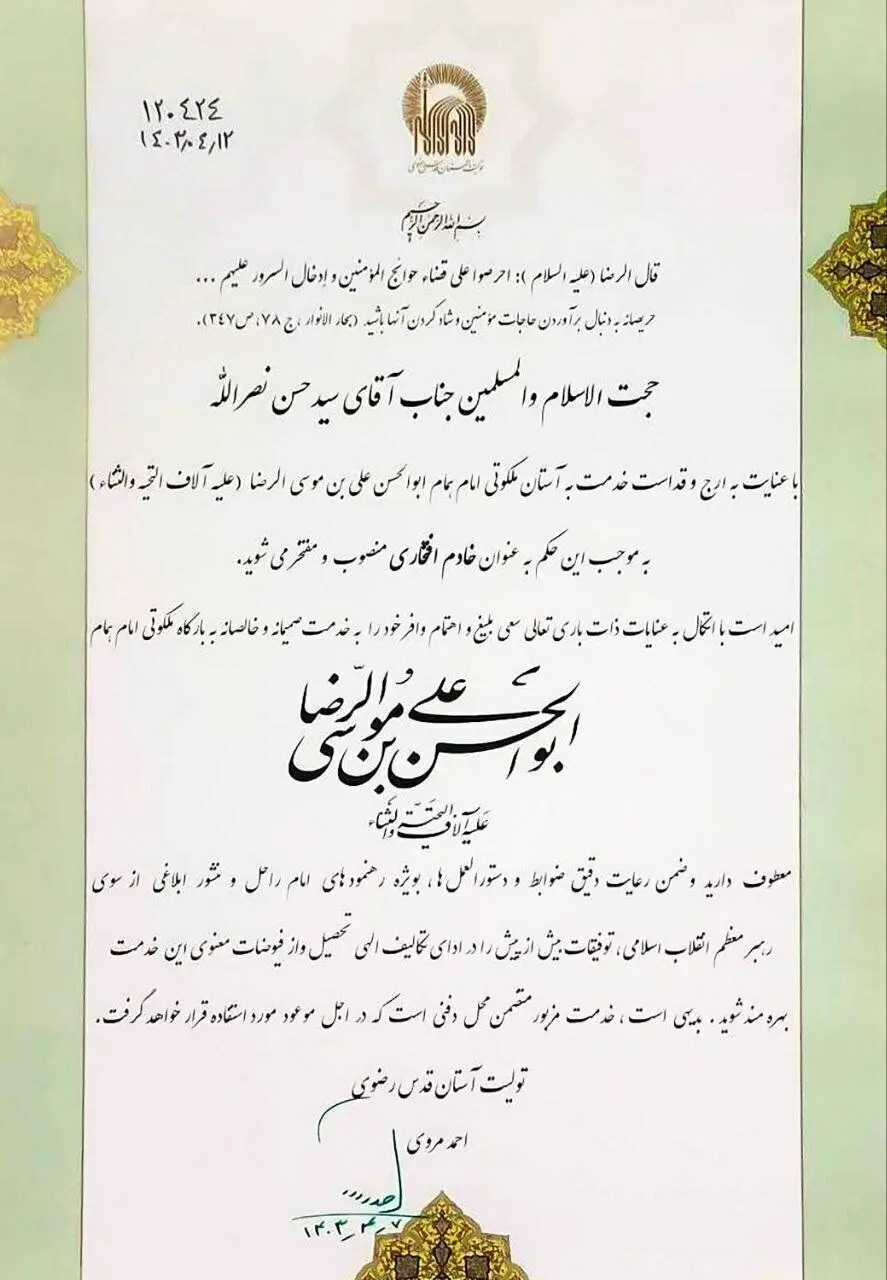 ۱۲۰٤۲٤
۱٤۰۳٫۰٤٫۱۲
تولیت آستان قدس رضوی
بسم الله الرحمن الرحیم
قال الرضا (علیه السلام): احرصوا علی قضاء حوائج المؤمنین و إدخال السرور علیهم ...
حریصانه به دنبال برآوردن حاجات مؤمنین و شاد کردن آنها باشید (بحار الانوار، ج ۷۸، ص ۳٤۷).
حجت الاسلام والمسلمین جناب آقای سید حسن نصرالله
با عنایت به ارج و قداست خدمت به آستان ملکوتی امام همام ابوالحسن علی بن موسی الرضا (علیه آلاف التحیه والثناء)
به موجب این حکم به عنوان خادم افتخاری منصوب و مفتخر می شوید.
امید است با اتکال به عنایات ذات باری تعالی سعی بلیغ و اهتمام وافر خود را به خدمت صمیمانه و خالصانه به بارگاه ملکوتی امام همام
ابوالحسن علی بن موسی الرضا
علیه آلاف التحیة والثناء
معطوف دارید و ضمن رعایت دقیق ضوابط و دستورالعمل ها، بویژه رهنمودهای امام راحل و منشور ابلاغی از سوی
رهبر معظم انقلاب اسلامی، توفیقات بیش از پیش را در ادای تکالیف الهی تحصیل و از فیوضات معنوی این خدمت
بهره مند شوید. بدیهی است، خدمت مزبور متضمن محل دفنی است که در اجل موعود مورد استفاده قرار خواهد گرفت.
تولیت آستان قدس رضوی
احمد مروی
۱۴۰۳٫۴٫۷